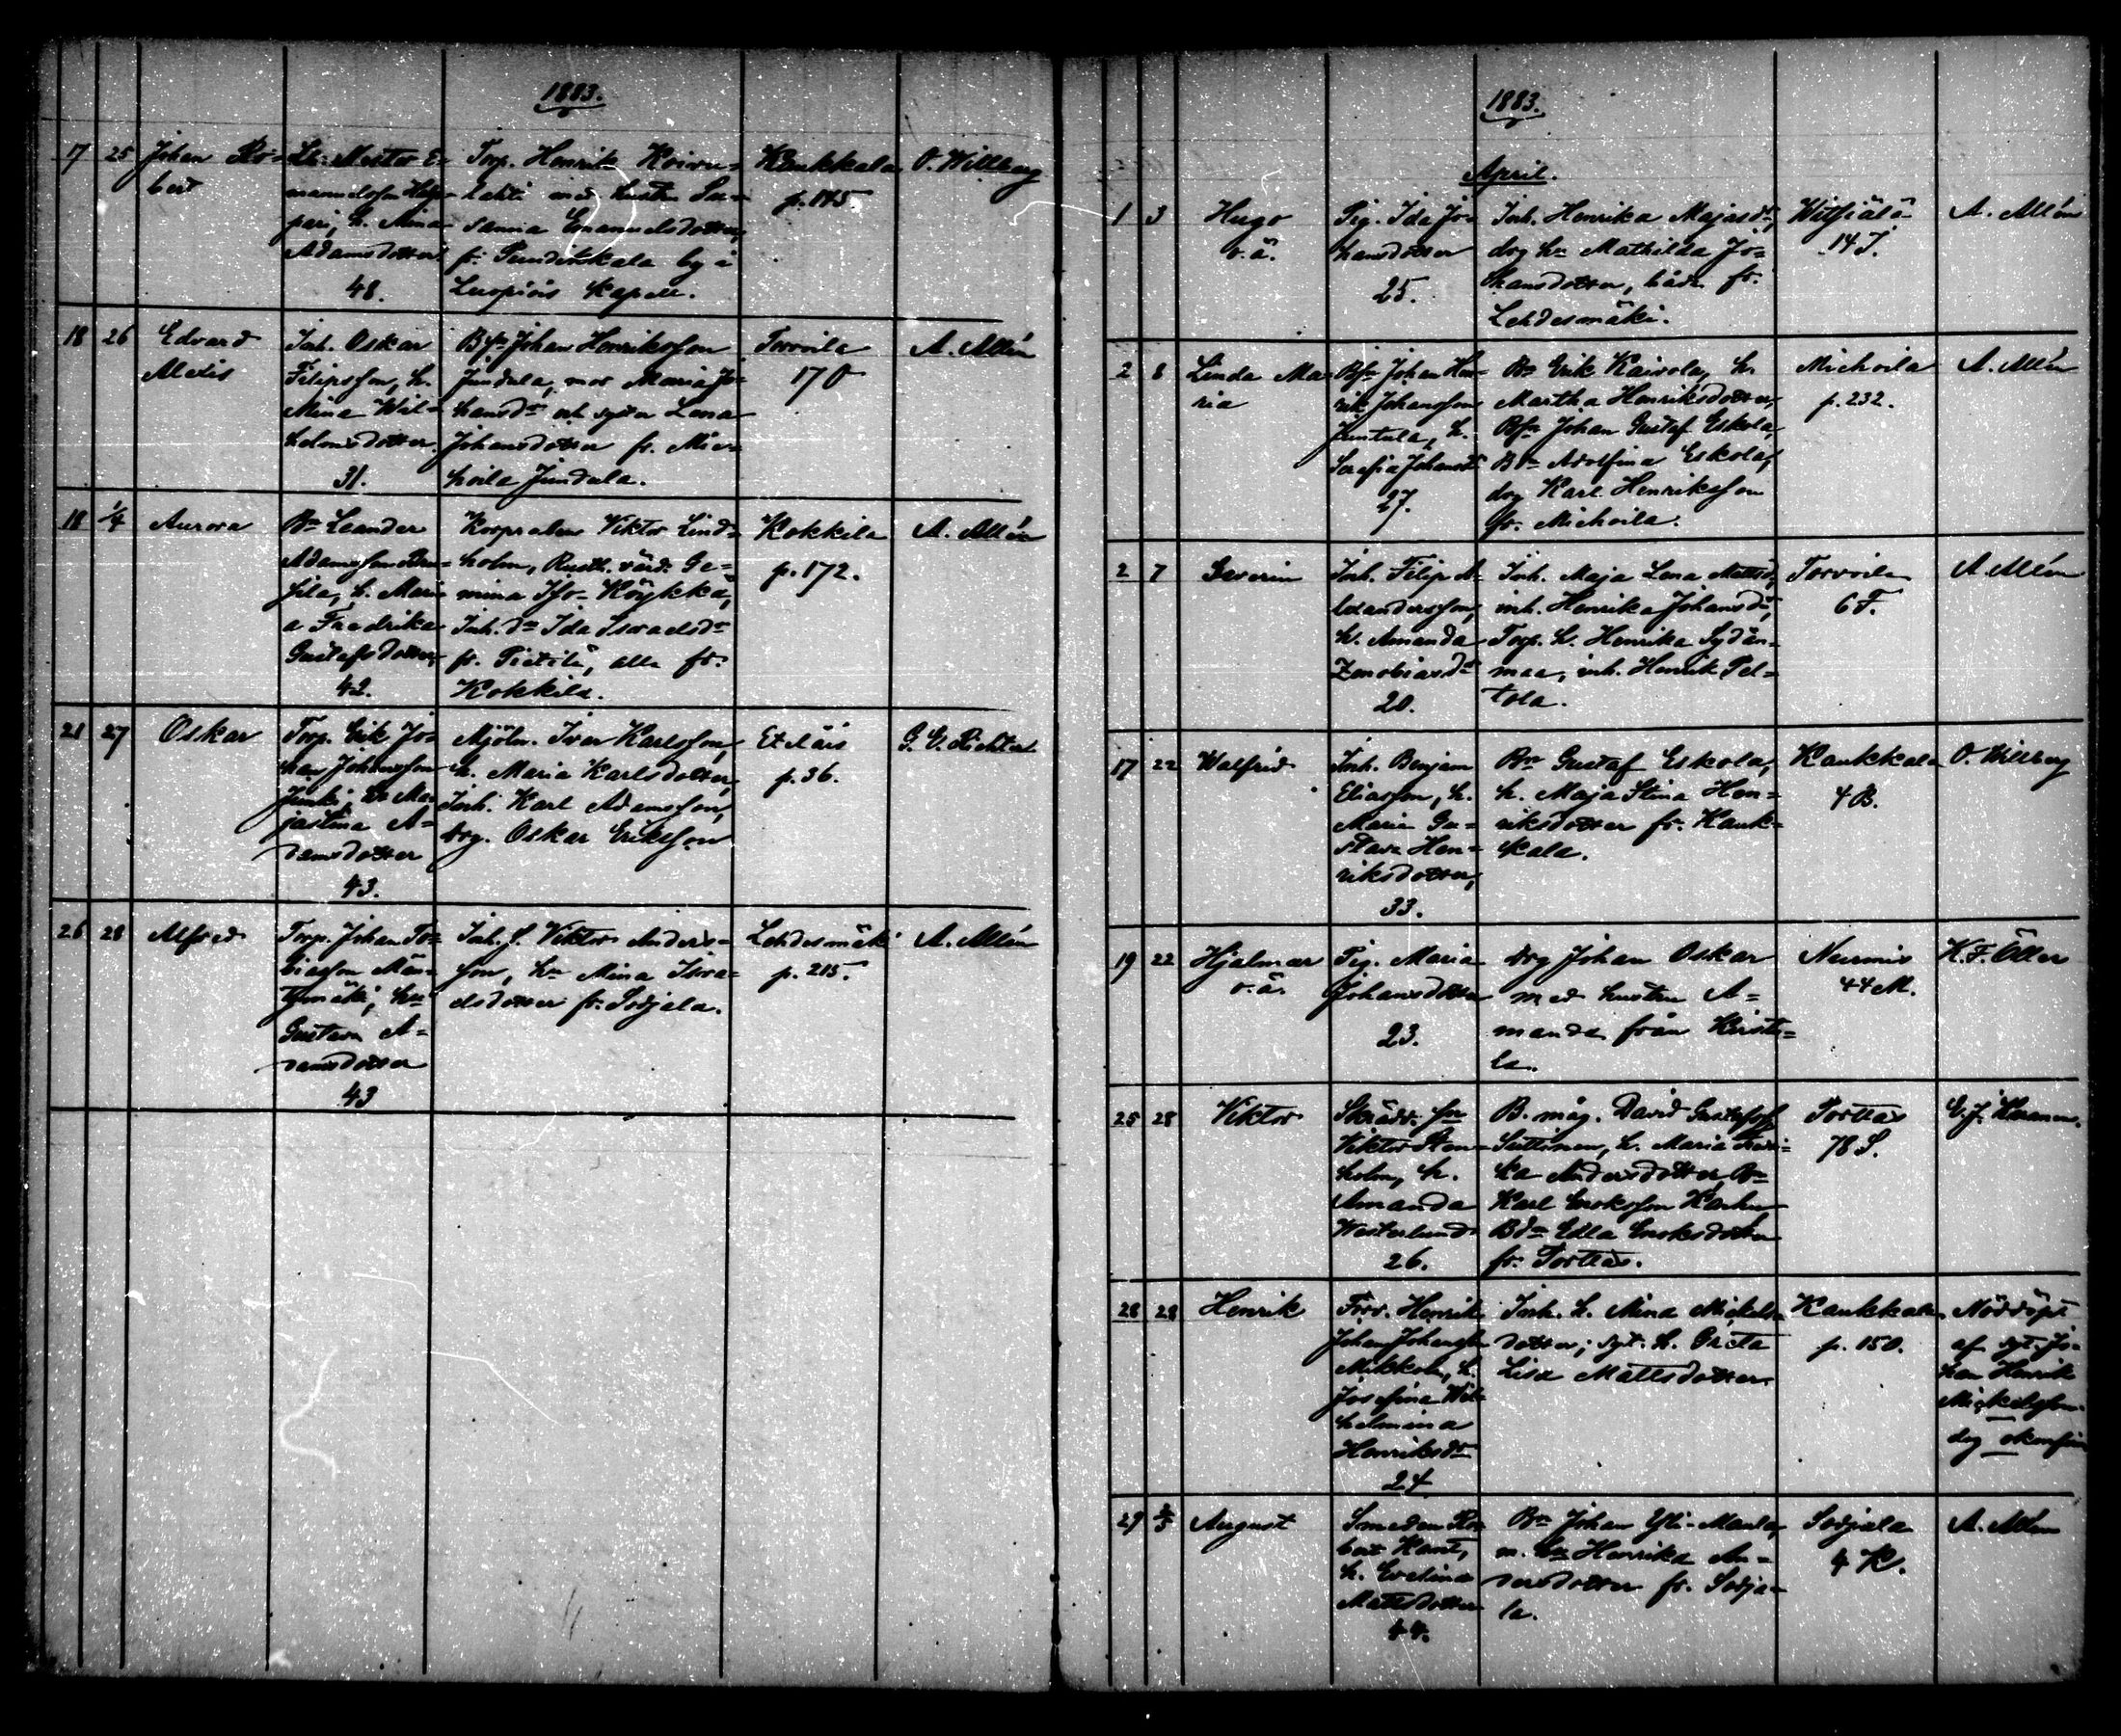 1883.
17 25 Johan Ro-
bert
Emanuelsson
h. Mina
Adamsdotter
48.
Torp. Henrik Koivu-
lahti med hustr. Su-
sanna Emanuelsdotter,
fr. by i
Luopiois kapell.
Kaukkala
p. 145.
O. Willberg
18 26 Edvard
Alexis
Inh. Oskar
Filipsson, h.
Mina Wil-
helmsdotter.
31.
Bfn Johan Henriksson
Jundula, mor Maria Jo-
hansdr och syster Lena
Johansdotter fr. Mie-
hoila Jundula.
Torvoila
170
A. Allén
18 1/4 Aurora
Bn Leander
Adamsson
h. Mari-
a Fredrika
Gustafsdotter,
42.
Korpralen Viktor Lind-
holm, Rusth. värd. Ge-
mina Iso-Köykkä,
Inh. dr Ida Israelsdr
fr. Pietilä, alla fr.
Kokkila.
Kokkila
p. 172.
A. Allén
21 27 Oskar
Torp. Erik Jo-
han Johansson
h. Ma-
jastina A-
damsdotter
43.
Mjöln. Ivar Karlsson,
h. Maria Karlsdotter,
Inh. Karl Adamsson,
drg. Oskar Eriksson
Eteläis
p. 36.
G. E. Richter
26 28 Alfred
Torp. Johan To-
biasson Män-
tymäki, hu
Gustava A-
damsdotter
43
Inh. s. Viktor Anders-
son, hu Mina Isra-
elsdotter fr. Sodjala.
Lehdesmäki
p. 215.
A. Allén
1883.
April.
1 3 Hugo
o. ä.
Pig. Ida Jo-
hansdotter
25.
Inh. Henrika Majasdr,
drg hu Mathilda Jo-
hansdotter, båda fr.
Lehdesmäki.
Witsiälä
14 J.
A. Allén
2 8 Linda Ma-
ria
Bfn Johan Hen-
rik Johansson
Juntula, h.
Serafia Johansdr
27.
Bn Erik Kairola, h.
Martha Henriksdotter,
Bfn Johan Gustaf Eskola,
Bdr Adolfina Eskola,
drg Karl Henriksson
fr. Miehoila.
Miehoila
p. 232.
A. Allén
2 7 Severin
Inh. Filip A-
lexandersson,
h. Amanda
Zenobiasdr
20.
Inh. Maja Lena Mattsdr,
inh. Henrika Johansdr,
Torp. h. Henrika Sydän-
maa, inh. Henrik Pel-
tola.
Torvoila
6 F.
A. Allén
17 22 Walfrid
Inh. Benjam
Eliasson, h.
Maria Gu-
stava Hen-
riksdotter,
33.
Bn Gustaf Eskola,
h. Maja Stina Hen-
riksdotter fr. Kauk-
kala.
Kaukkala
4 B.
O. Willberg
19 22 Hjalmar
o. ä.
Pig. Maria
Johansdotter
23.
drg Johan Oskar
med hustru A-
manda från
la.
Nurmis
44 M.
K. F. Öller
25 28 Viktor
Skrädd. sn
Viktor Sten-
holm, h.
Amanda
Westerlund
26.
B. måg. David Gustafsson
h. Maria Fredri-
ka Andersdotter, Bn
Karl Enoksson
Bdr Edla Enoksdotter
fr. Porttas.
Porttas
78 S.
E. J.
28 28 Henrik
Torp. Henrik
Johan Johansson
Mikkola, h.
Josefina Wil-
helmina
Henriksdr
24
Inh. h. Mina Mickels-
dotter; syt. h. Greta
Lisa Mattsdotter
Kaukkala
p. 150.
Nöddöpt
af syt. Jo-
han Henrik
Mickelsson
29 2/5 August
Smeden Ro-
bert Kant,
h. Evelina
Mattsdotter
44.
Bn Johan Yli-Maula,
m. hu Henrika An-
dersdotter fr. Sodja-
la.
Sodjala
4 K.
A. Allén